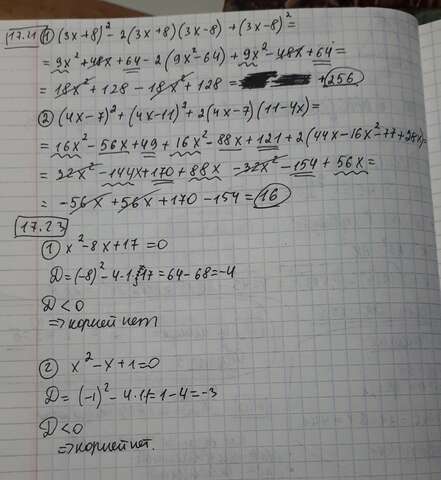 17.21 1) (3x+8)² - 2(3x+8)(3x-8) + (3x-8)² =
= 9x² + 48x + 64 - 2(9x² - 64) + 9x² - 48x + 64 =
= 18x² + 128 - 18x² + 128 = + 256
2) (4x-7)² + (4x-11)² + 2(4x-7)(11-4x) =
= 16x² - 56x + 49 + 16x² - 88x + 121 + 2(44x - 16x² - 77 + 28x) =
= 32x² - 144x + 170 + 88x - 32x² - 154 + 56x =
= - 56x + 56x + 170 - 154 = 16
17.23
1) x² - 8x + 17 = 0
D = (-8)² - 4·1·17 = 64 - 68 = -4
D < 0
=> корней нет
2) x² - x + 1 = 0
D = (-1)² - 4·1·1 = 1 - 4 = -3
D < 0
=> корней нет.